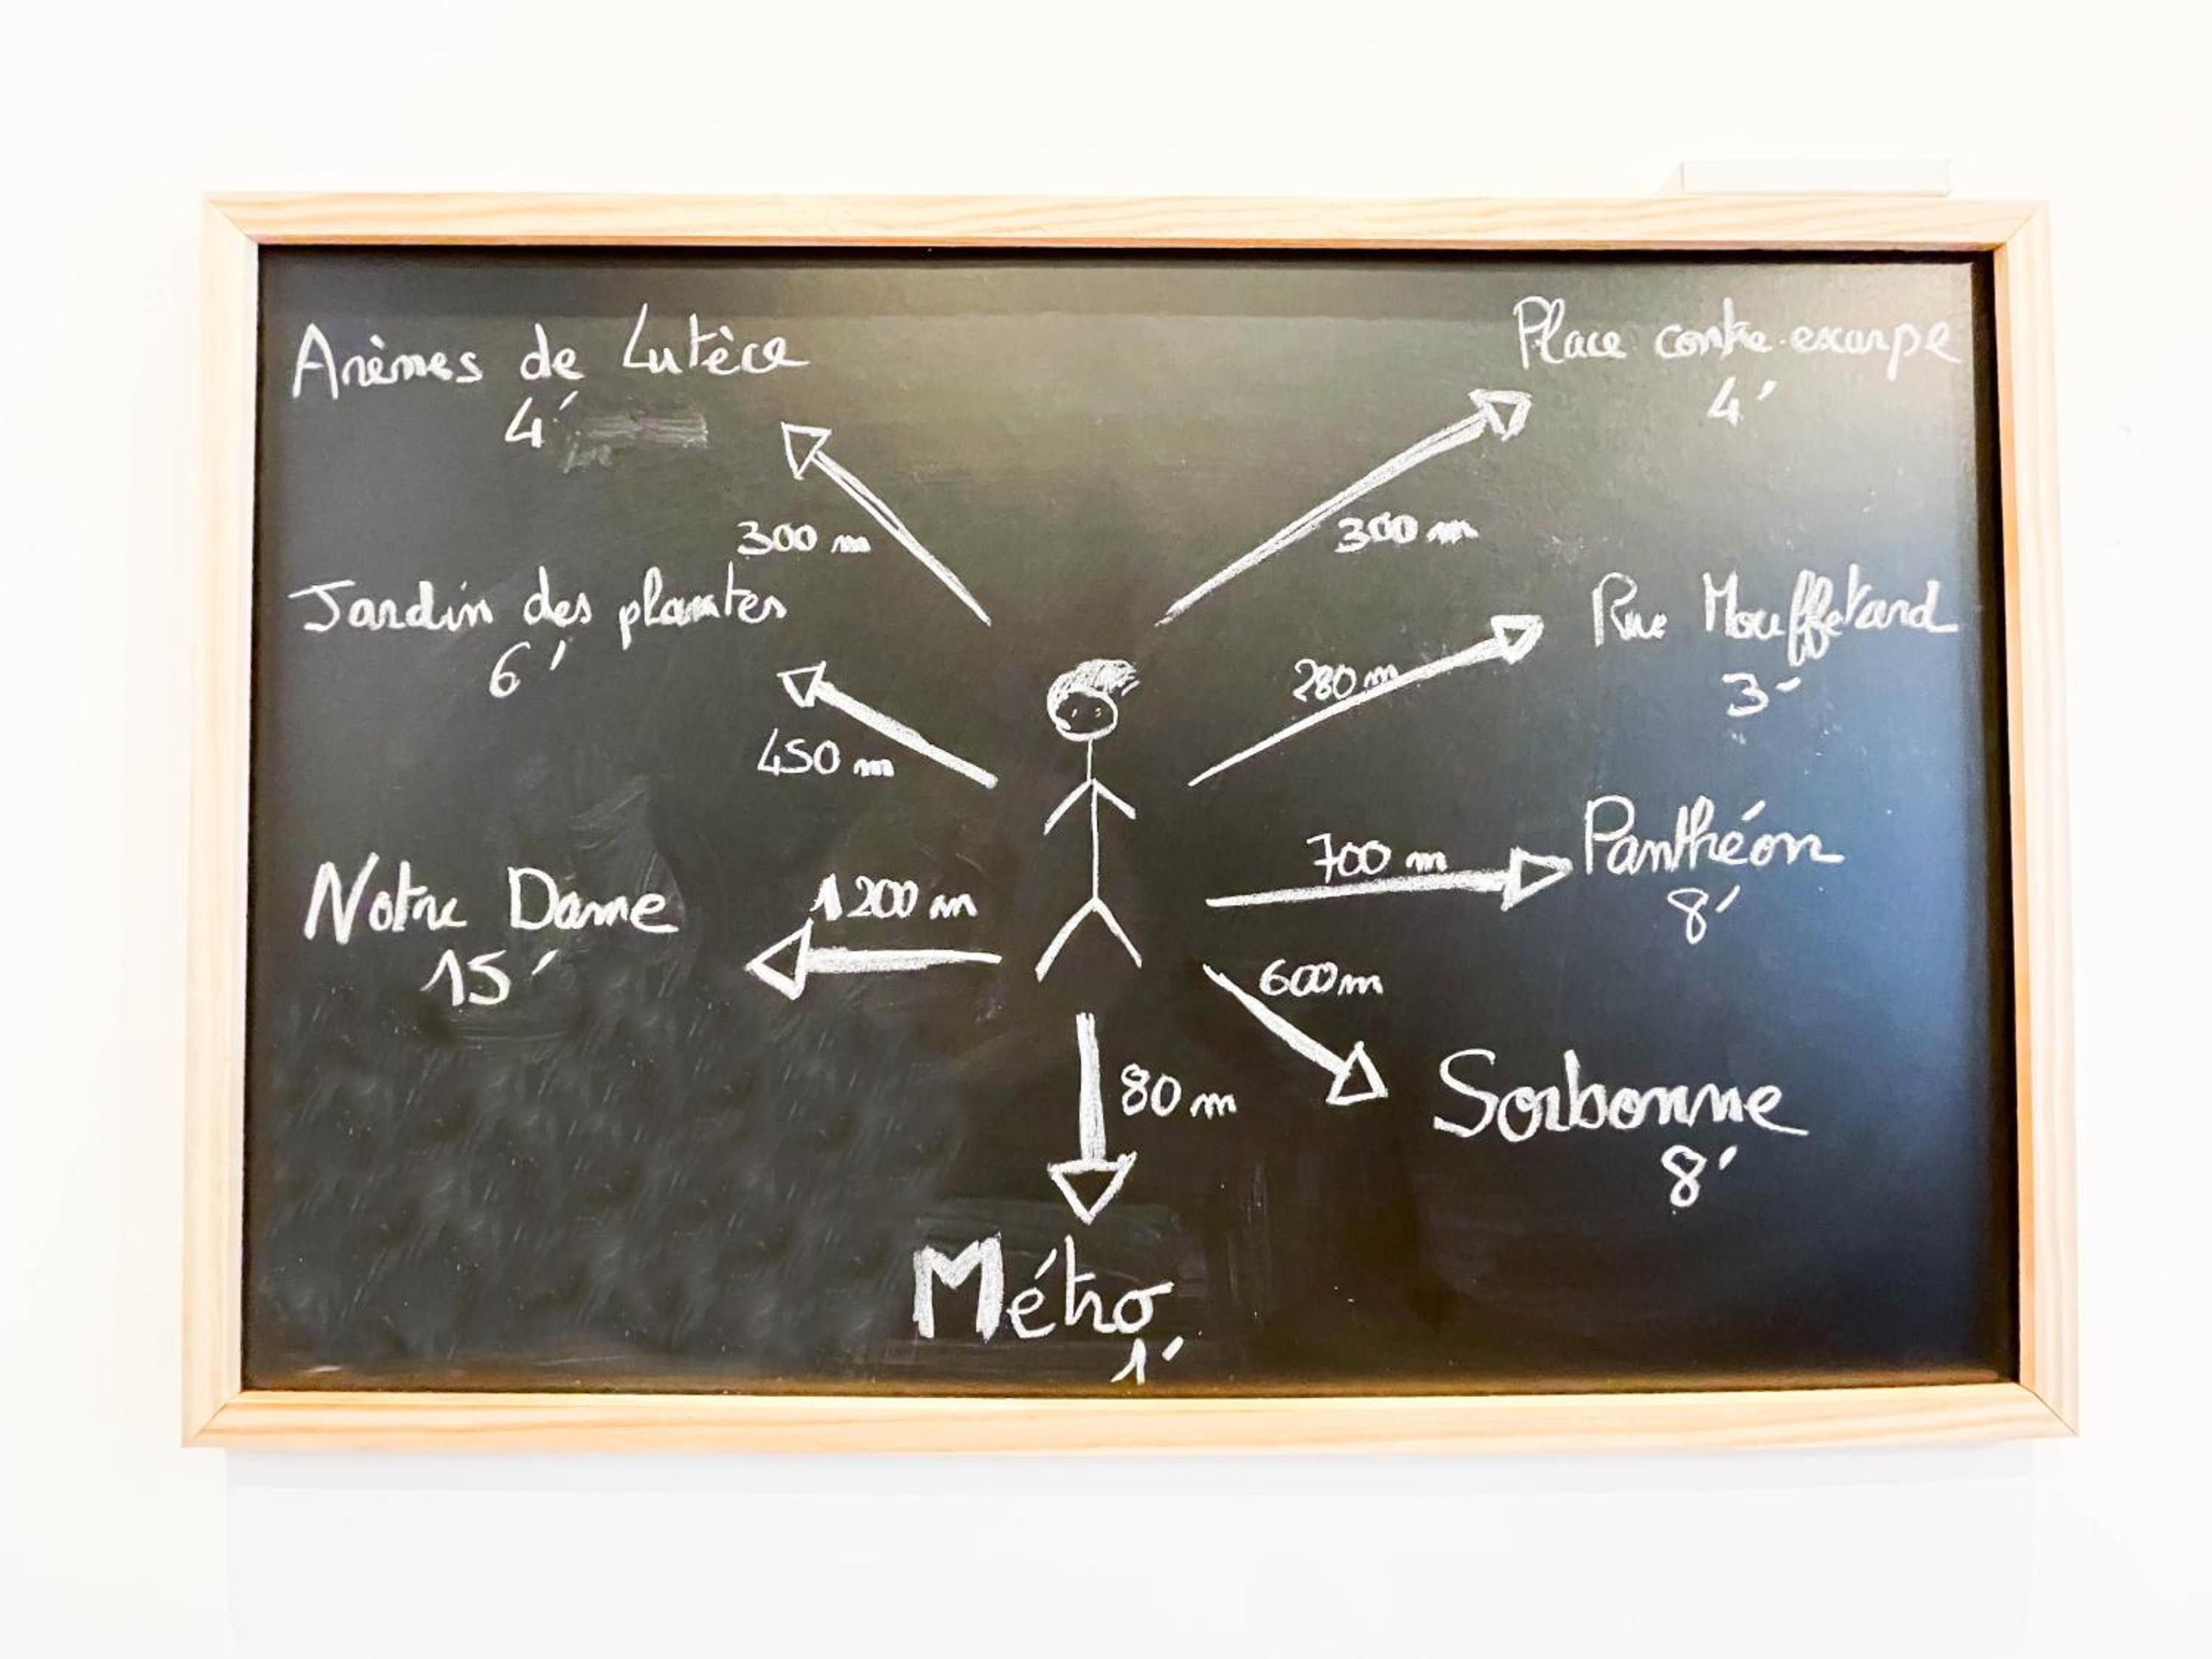 Arènes de Lutèce
4'
300 m
Place contre-excarpe
4'
300 m
Jardin des plantes
6'
450 m
Rue Mouffetard
3'
280 m
Notre Dame
15'
1200 m
Panthéon
8'
700 m
600m
Sorbonne
8'
80 m
Métro
1'